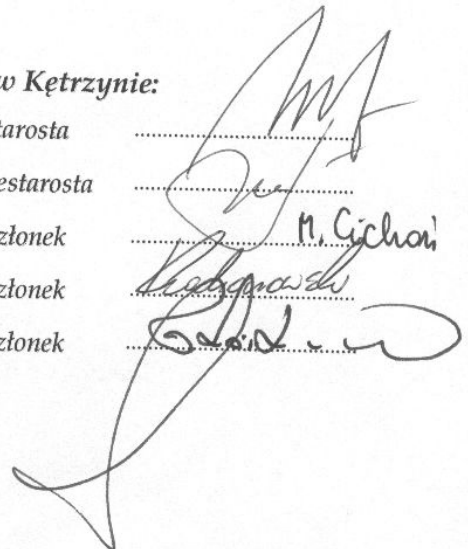 w Kętrzynie:
tarosta ........................................
estarosta ........................................
złonek ........................................ M. Cichoń
złonek ........................................
złonek ........................................